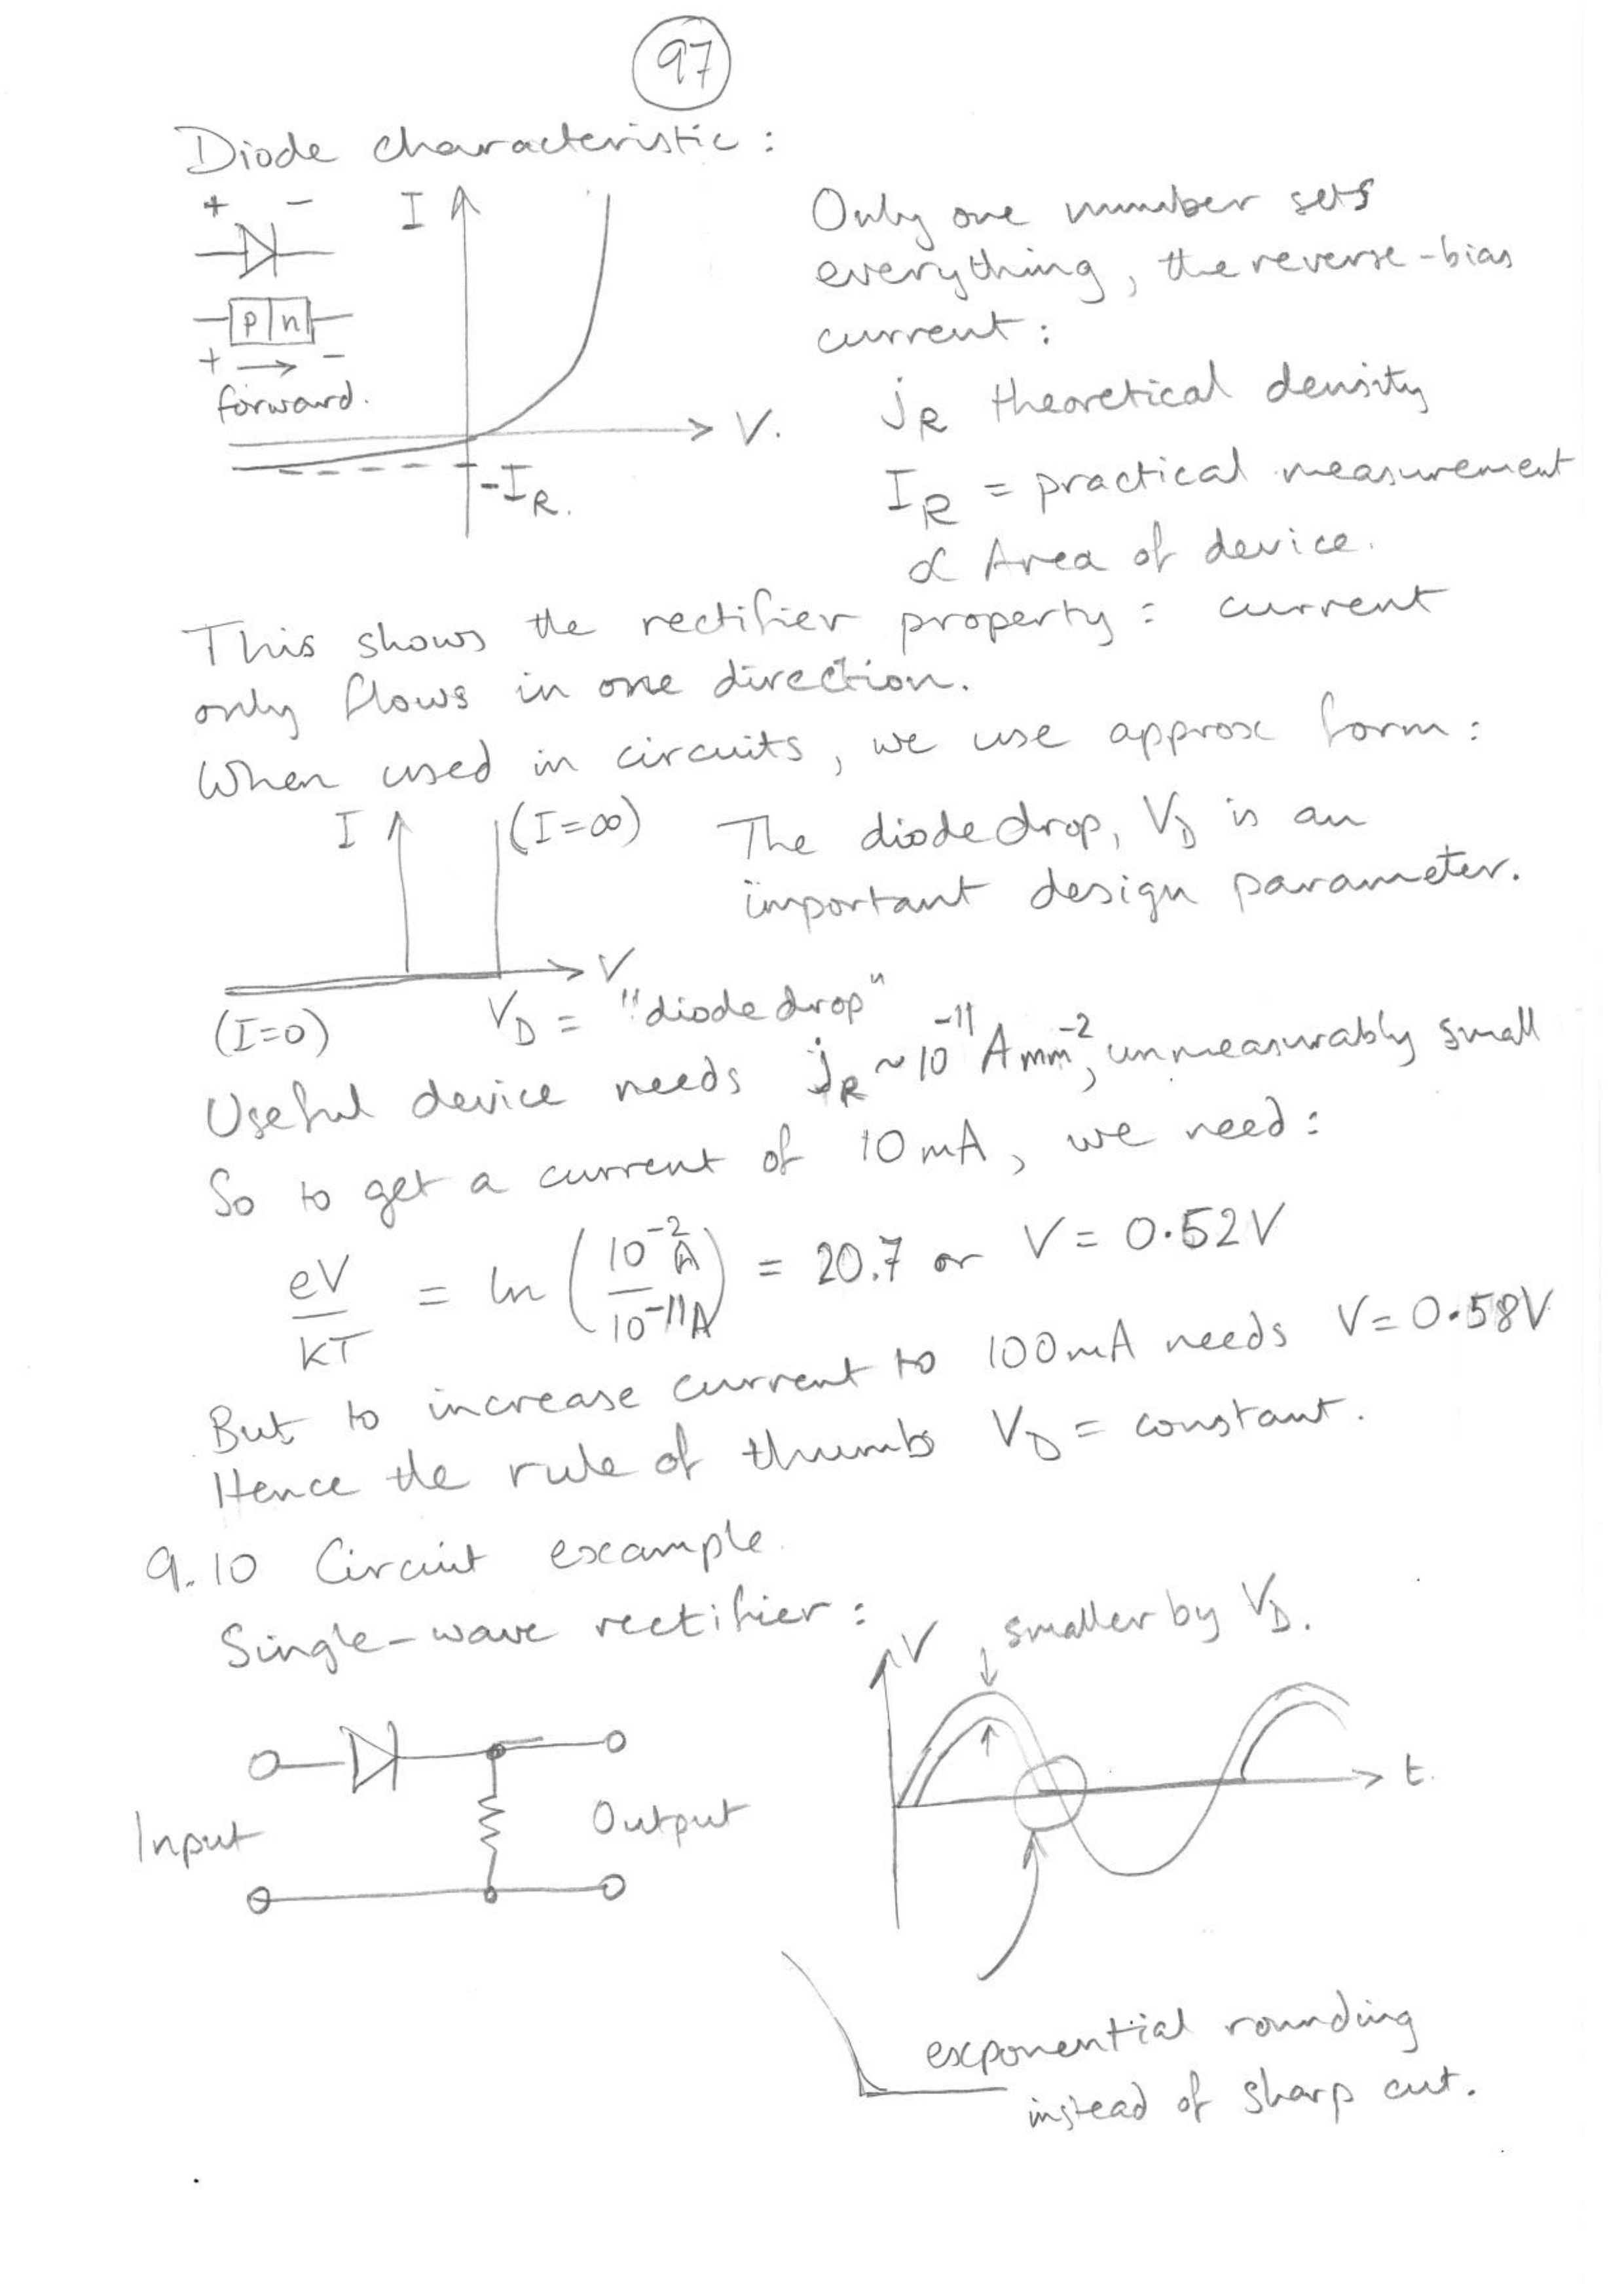 97
Diode characteristic :
+ −
I
Only one number sets
everything, the reverse-bias
current :
p n
+ → −
forward.
V.
-I_R.
j_R theoretical density
I_R = practical measurement
∝ Area of device.
This shows the rectifier property : current
only flows in one direction.
When used in circuits, we use approx form :
I
(I=∞)
The diode drop, V_D is an
important design parameter.
V
(I=0)
V_D = "diode drop"
Useful device needs j_R ~ 10^-11 A mm^-2, unmeasurably small
So to get a current of 10 mA, we need :
eV/kT = ln (10^-2 A / 10^-11 A) = 20.7 or V = 0.52V
But to increase current to 100mA needs V = 0.58V
Hence the rule of thumb V_D = constant.
9.10 Circuit example.
Single-wave rectifier :
V
smaller by V_D.
t.
Input
Output
exponential rounding
instead of sharp cut.